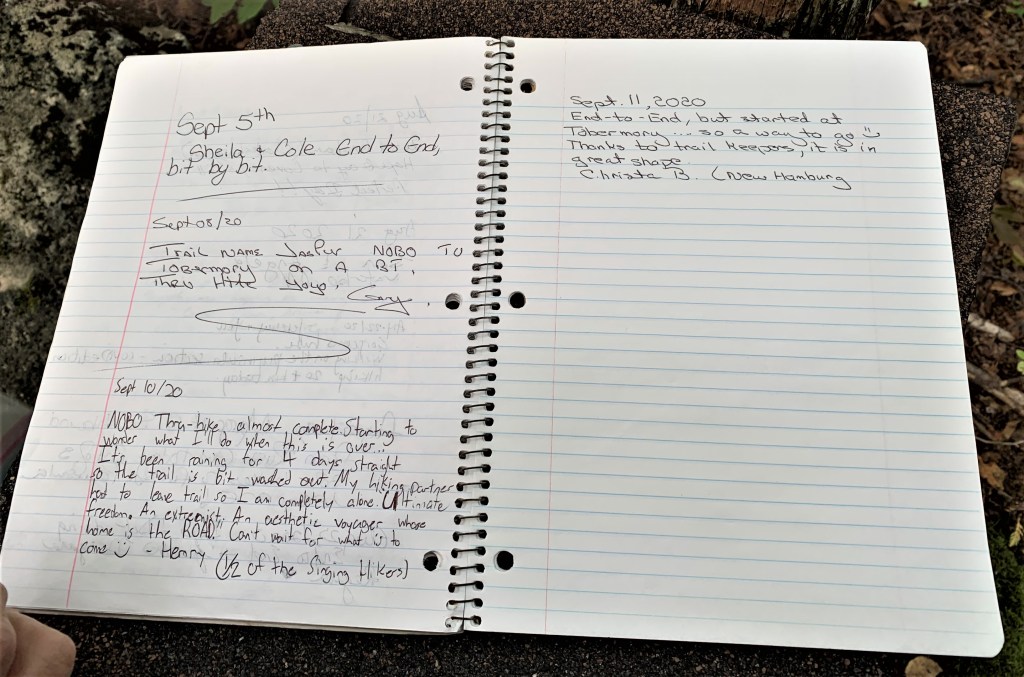 Sept 5th
Sheila & Cole End to End,
bit by bit.
Sept 08/20
Trail name Jasper NOBO TO
Tobermory on A BT.
Then Hike yoyo. Gary.
Sept 10/20
NOBO Thru-hike almost complete. Starting to
wonder what I'll do when this is over...
It's been raining for 4 days straight
so the trail is bit washed out. My hiking partner
had to leave trail so I am completely alone. Ultimate
freedom. An extremist. An aesthetic voyager whose
home is the ROAD!! Can't wait for what is to
come :) - Henry (1/2 of the Singing Hikers)
Sept. 11, 2020
End-to-End, but started at
Tobermory .... so a way to go :)
Thanks to trail keepers, it is in
great shape.
Christa B. (New Hamburg